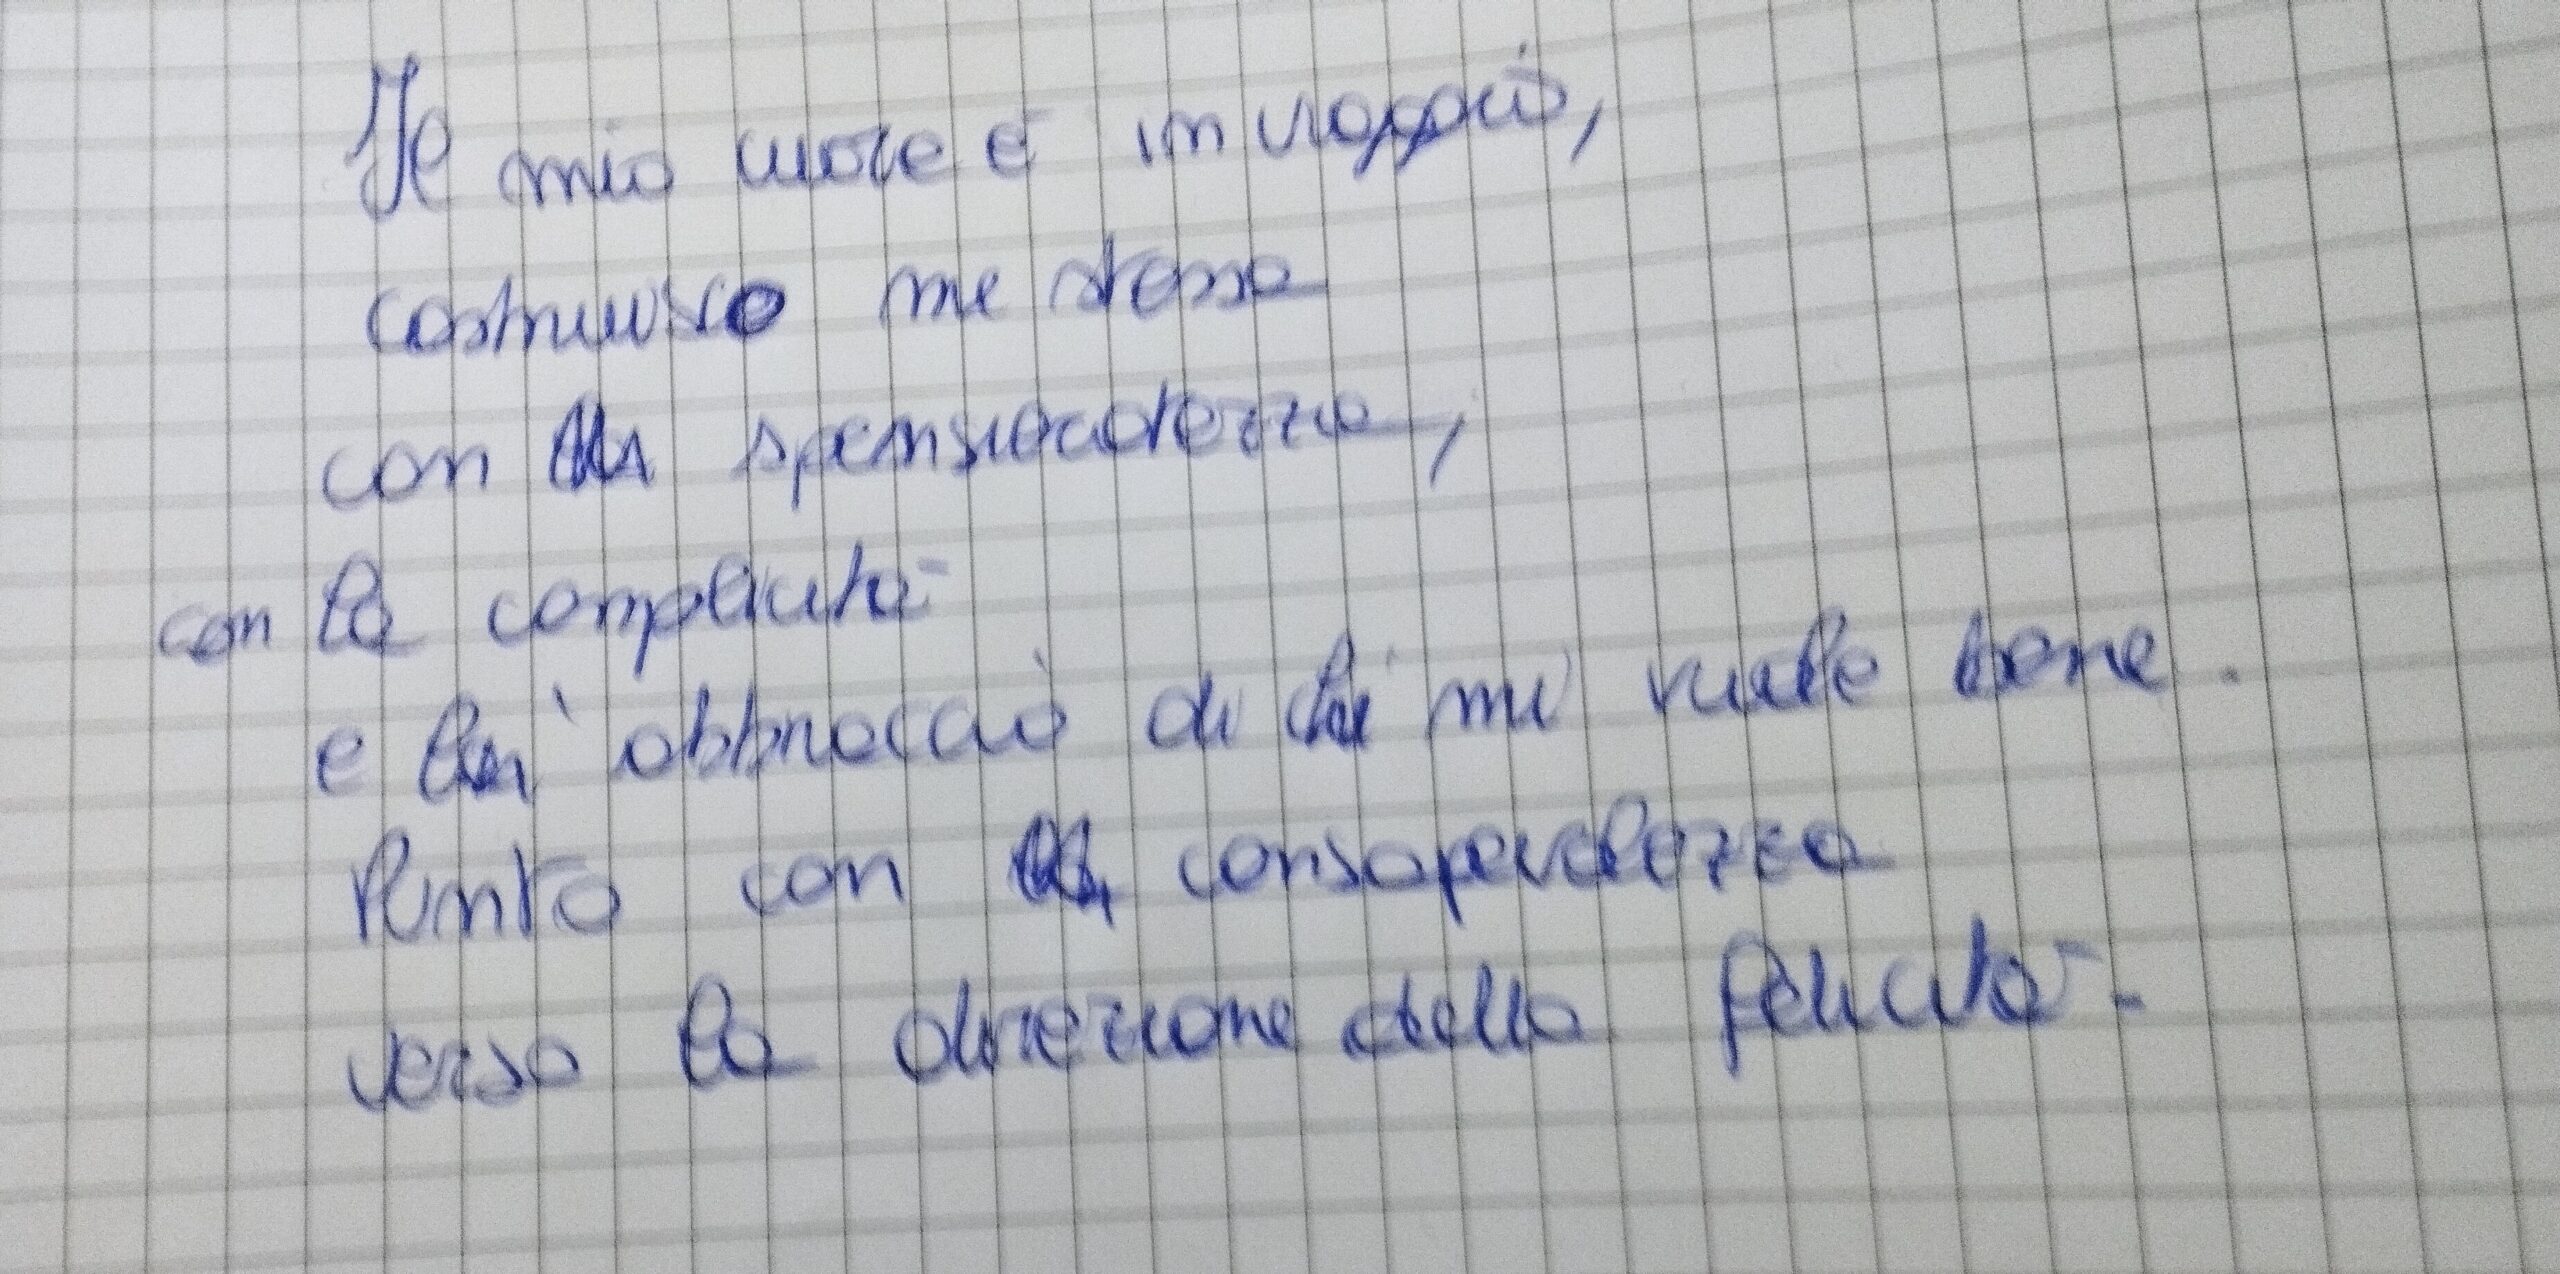 Il mio cuore è in viaggio,
costruisco me stessa
con spensieratezza,
con la complicità
e l'abbraccio di chi mi vuole bene.
Punto con consapevolezza
verso la direzione della felicità.